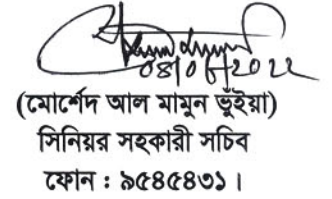 ০৪/০৮/২০২২
(মোর্শেদ আল মামুন ভুঁইয়া)
সিনিয়র সহকারী সচিব
ফোন : ৯৫৪৫৪৩১।